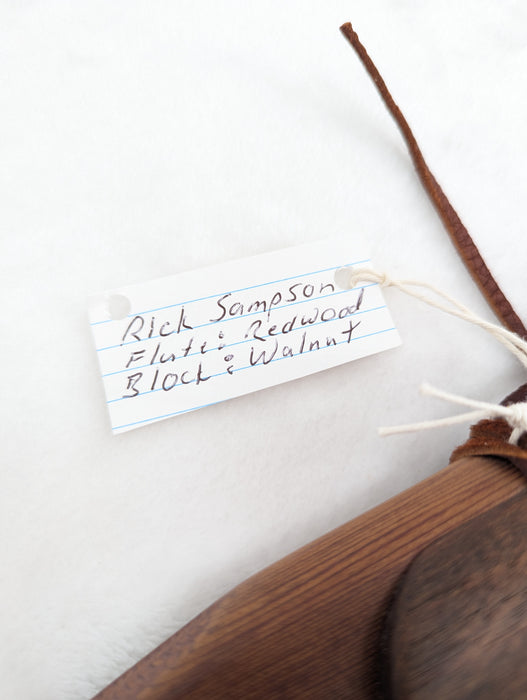 Rick Sampson
Flute: Redwood
Block: Walnut